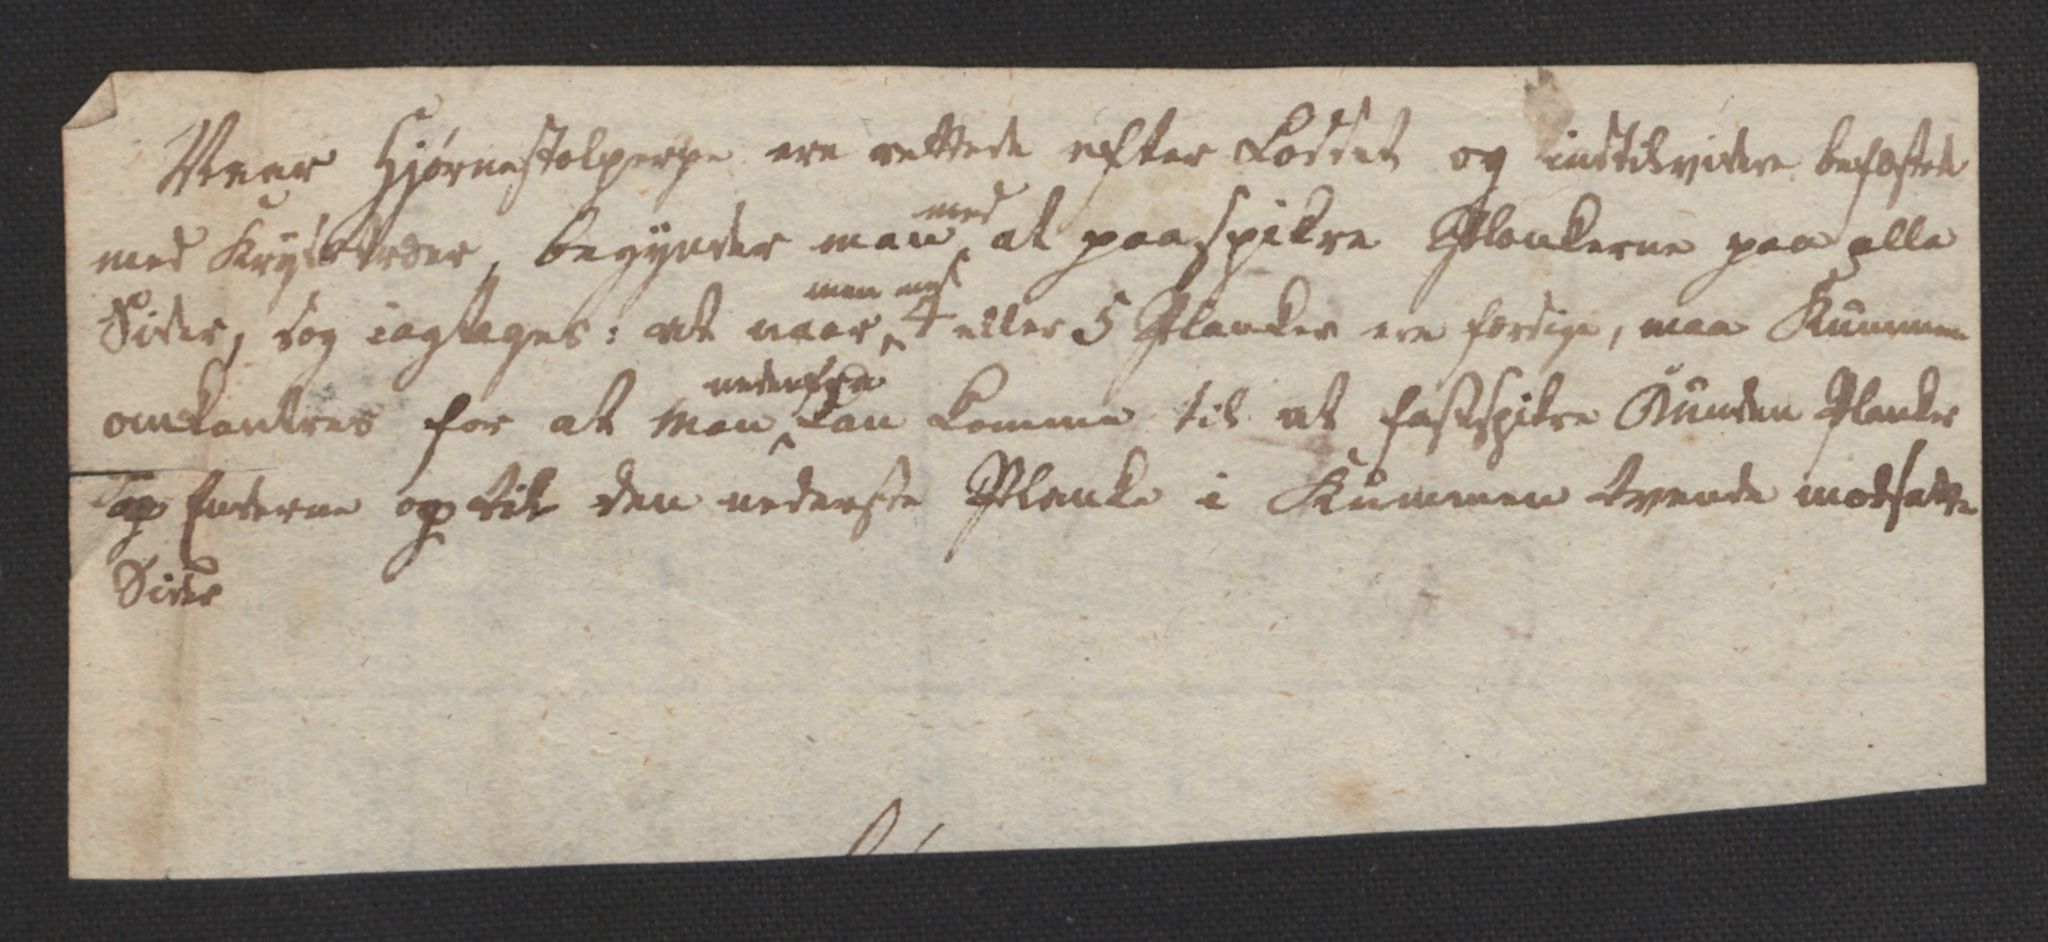 Naar Hjørnestolperne ere rettede efter Loddet og indtilvidere befæstede
med Krydstræer, begynder man med at paaspikre Plankerne paa alle
Sider, dog iagtages: at naar man med 4 eller 5 Planker ere færdige, maa Kummen
omkantres for at man nedenfra kan komme til at fastspikre Bunden Planker
Enderne op til den nederste Planke i Kummen tvende modsatte
Sider